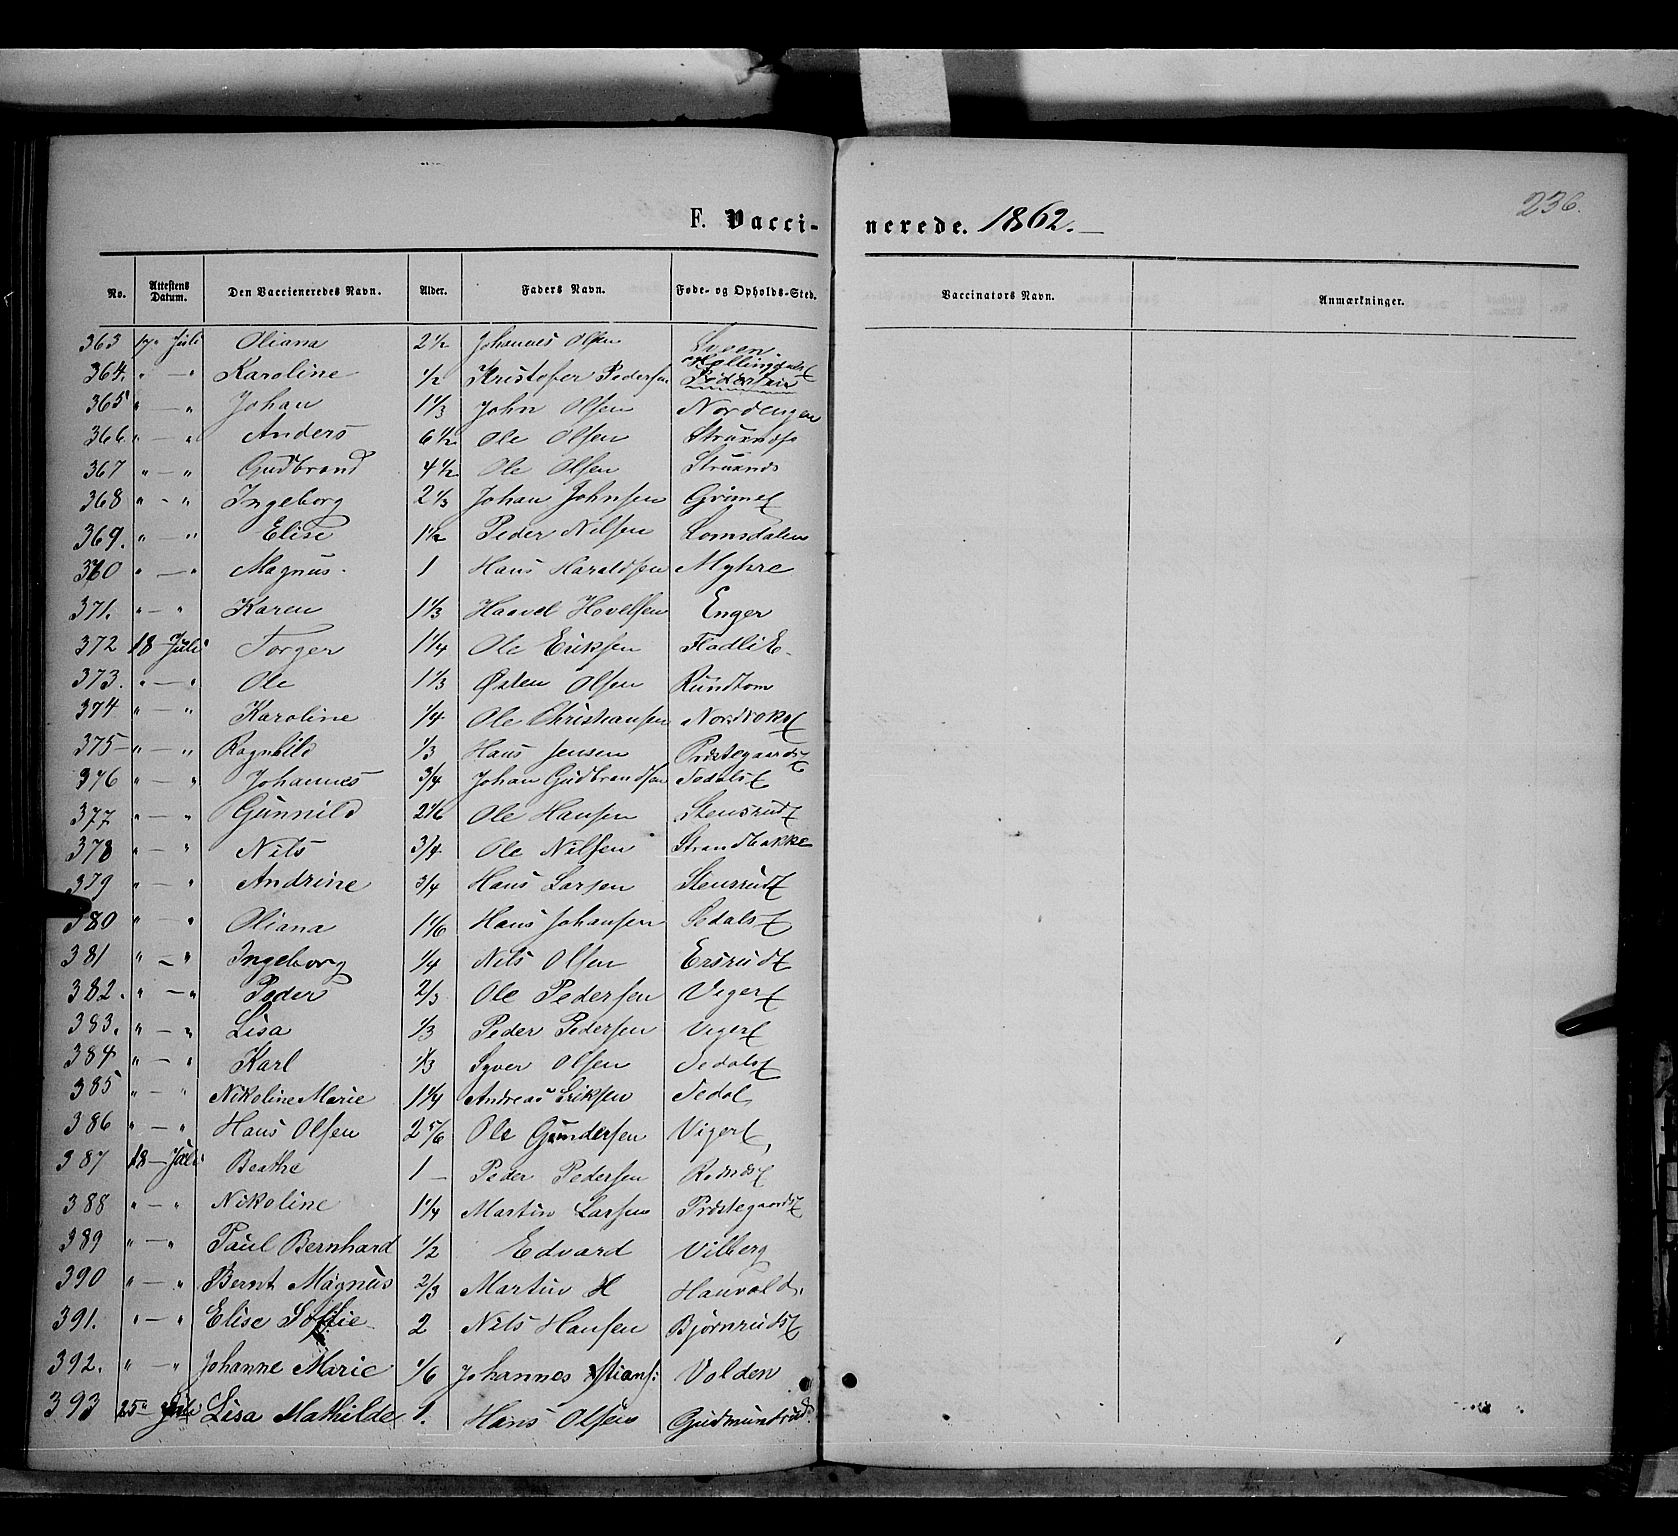 236.
F. Vacci-nerede. 1862.
No. Attestens Datum. Den Vaccieneredes Navn. Alder. Faders Navn. Føde- og Opholds-Sted. Vaccinators Navn. Anmærkninger.
363 17 Juli Oliana 2 1/2 Johannes Olsen
364. " — " Karoline 1/2 Kristofer Pedersen
365 " — " Johan 1 1/3 John Olsen Nordengen
366. " — " Anders 6 1/2 Ole Olsen
367 " — " Gudbrand 4 1/2 Ole Olsen
368 " — " Ingeborg 2 1/3 Johan Johnsen
369. " — " Elise 1 1/2 Peder Nilsen Lomsdalen
370 " — " Magnus. 1 Hans Haraldsen Myhre
371. " — " Karen 1 1/3 Haavel Hovelsen Enger
372 18 — Juli Torger 1 1/4 Ole Eriksen FladliE.
373. " — " Ole 1 1/3 Østen Olsen Rundtom
374 " — " Karoline 1/4 Ole Christiansen
375 — " — " Ragnhild 1/3 Hans Jensen Præstegaards
376 " — " Johannes 3/4 Johan Gudbrandsen
377 " — " Gunnild 2 1/6 Ole Hansen Stensrud
378 " — " Nils 3/4 Ole Nilsen Strandbakke
379 " — " Andrine 3/4 Hans Larsen Stensrud
380 " — " Oliana 1 1/6 Hans Johansen
381 " — " Ingeborg 1/4 Nils Olsen Ersrud
382. " — " Peder 2/3 Ole Pedersen Viger
383. " — " Lisa 1/3 Peder Pedersen Viger
384 " — " Karl 1/3 Syver Olsen
385 " — " Nikoline Marie 1 1/4 Andreas Eriksen
386 " — " Hans Olsen 2 5/6 Ole Gundersen Viger
387 18 — Juli Beathe 1 — Peder Pedersen
388 " — " Nikoline 1 1/4 Martin Larsen Præstegaards
389 " — " Paul Bernhard 1/2 Edvard Vilberg
390 " — " Bernt Magnus 2/3 Martin H Hauvold
391. " — " Elise Sofie 2 Nils Hansen Bjørnruds
392. " — " Johanne Marie 1/6 Johannes Volden
393 25 — Juli Lisa Mathilde 1. Hans Olsen Gudmundsrud